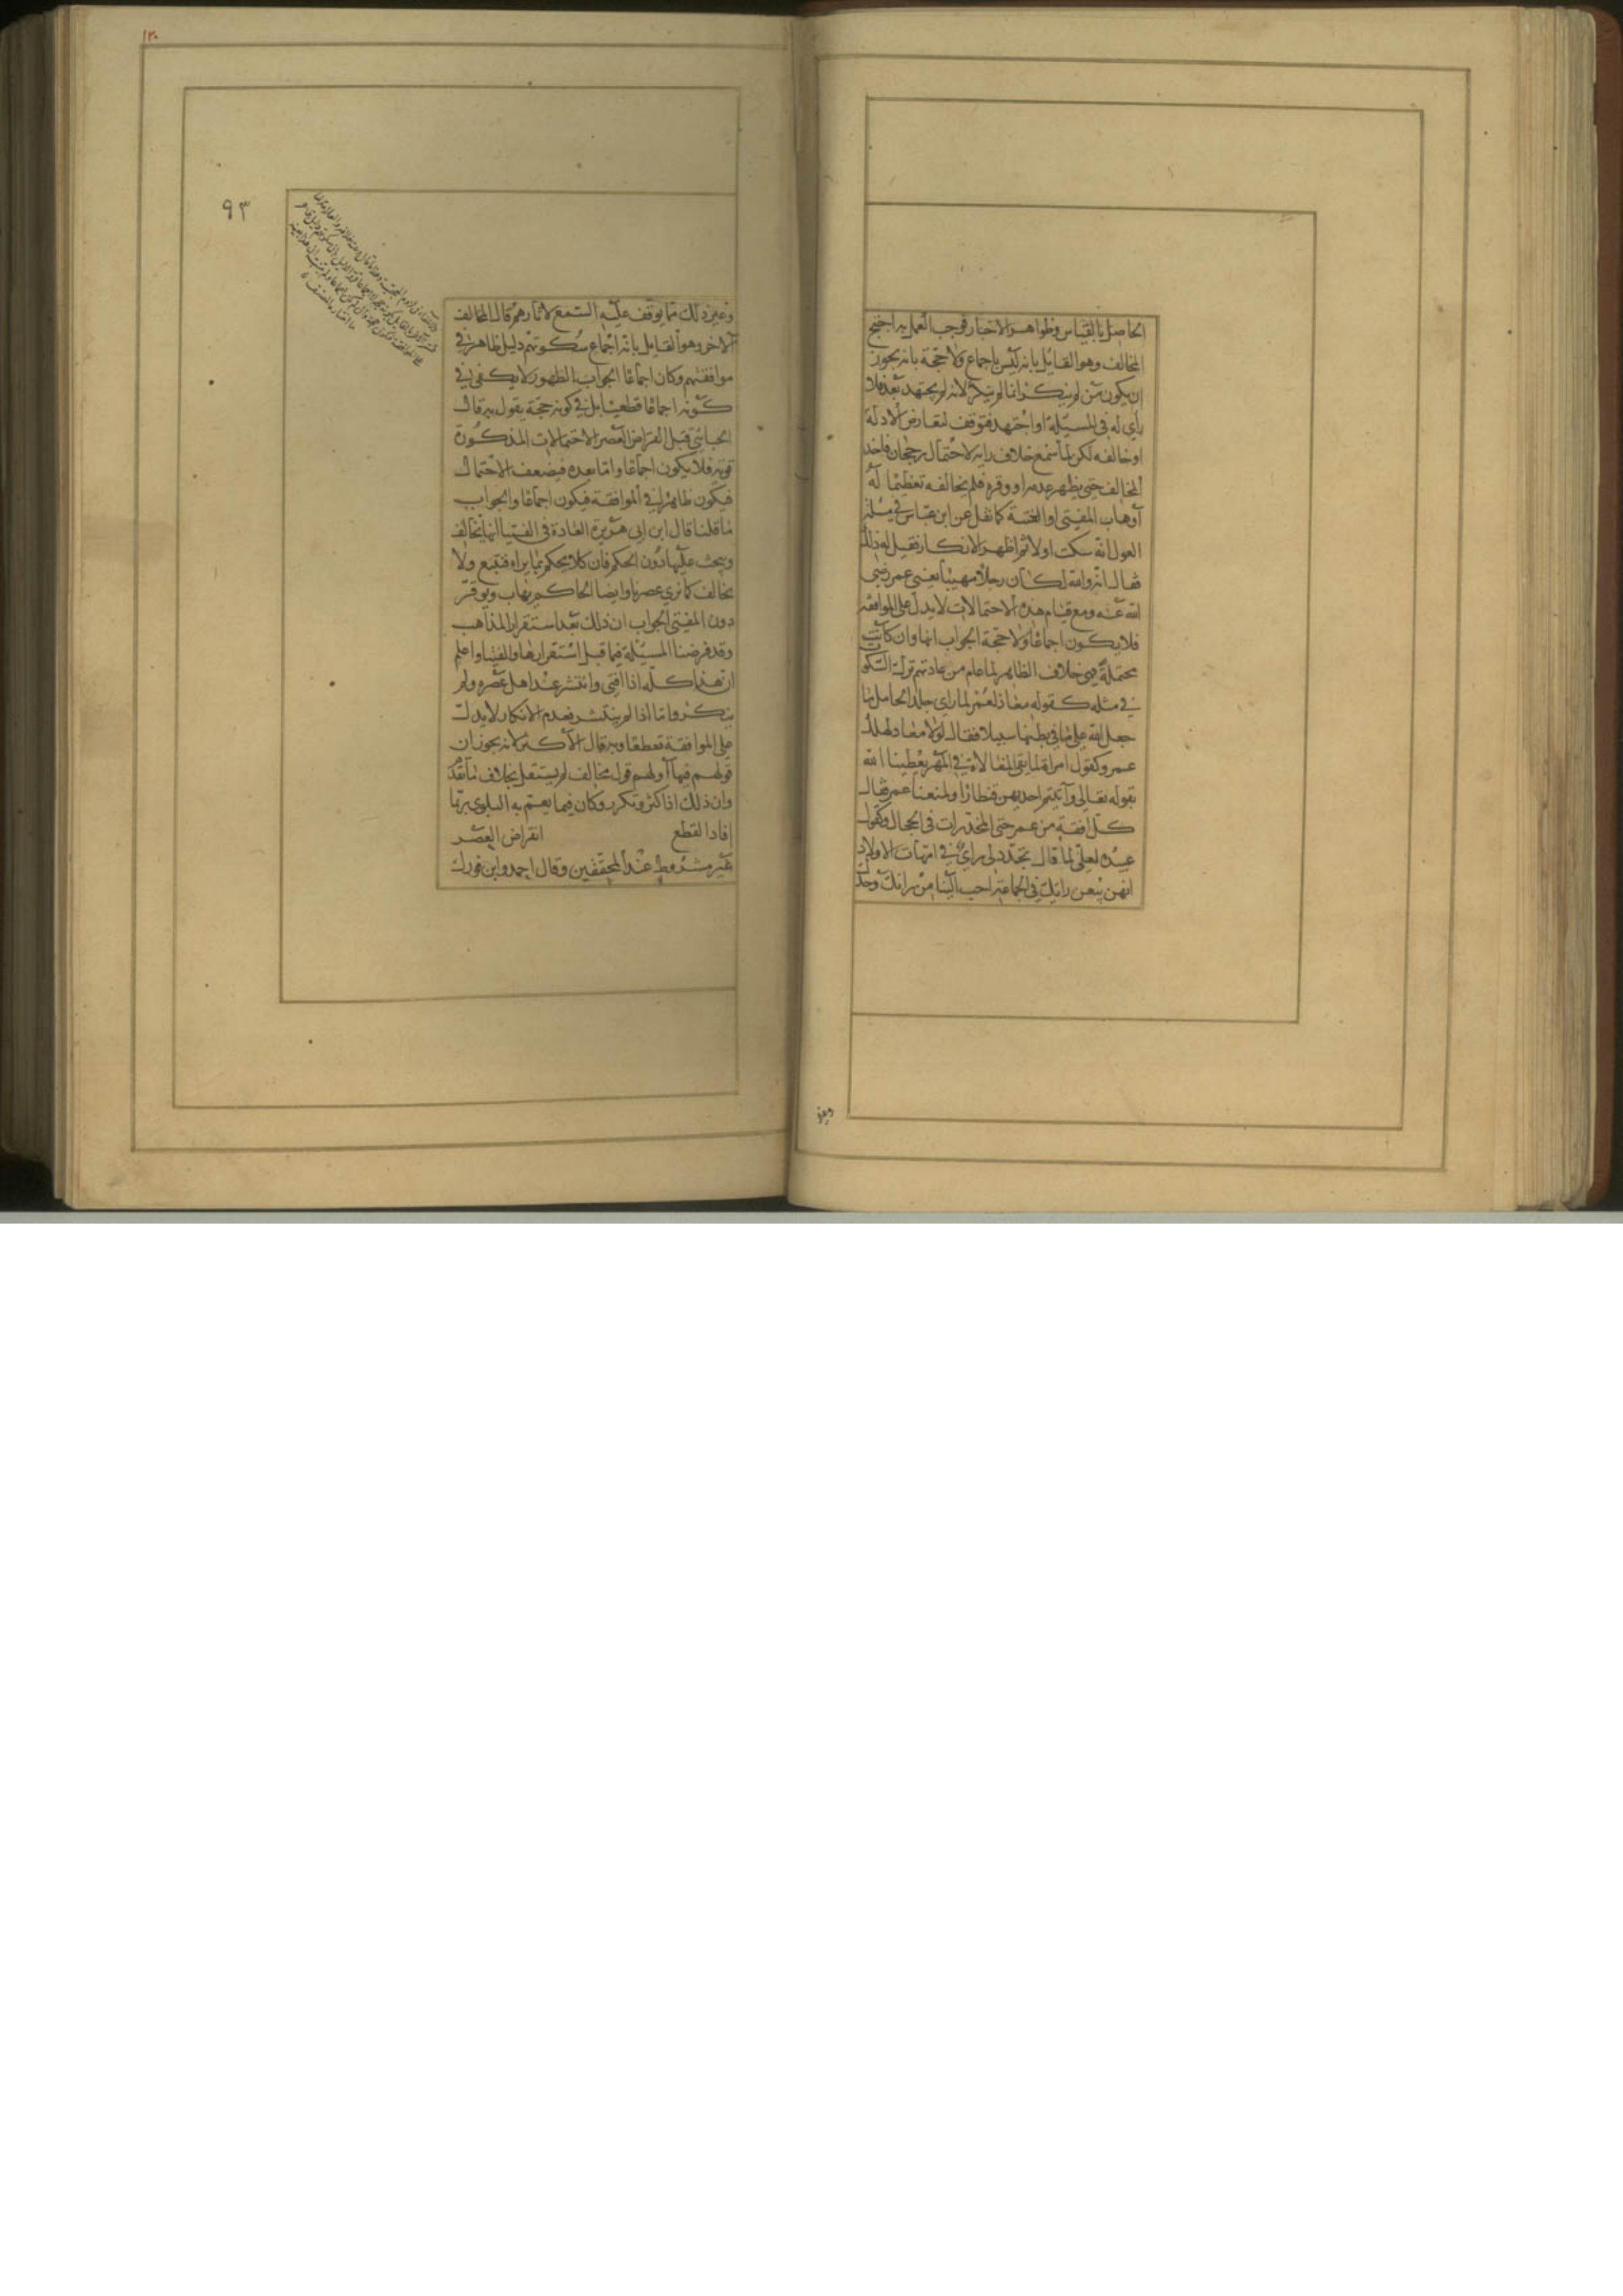 الحاصل بالقياس وظواهر الاخبار فوجب العمل به احتج
المخالف وهو القايل بانه ليس باجماع ولا حجة بانه يجوز
ان يكون من لم ينكر انما لم ينكر لانه لم يجتهد بعد فلا
راي له في المسئلة او اجتهد فتوقف لتعارض الادلة
او خالفه لكن لما سمع خلاف رايه لاحتمال رجحان ماخذ
المخالف حتى يظهر عدمه او وقره فلم يخالفه تعظيما له
او هاب المفتي او الفتنة كما نقل عن ابن عباس في مسئلة
العول انه سكت اولا ثم اظهر الانكار فقيل له ذلك
فقال انه والله لكان رجلا مهيبا يعني عمر رضي
الله عنه ومع قيام هذه الاحتمالات لا يدل على الموافقة
فلا يكون اجماعا ولا حجة الجواب انها وان كانت
محتملة فهي خلاف الظاهر لما علم من عادتهم ترك السكوت
في مثله كقوله معاذ لعمر لما راي جلد الحامل ما
جعل الله على ما في بطنها سبيلا فقال لولا معاذ لهلك
عمر وكقول امراة لما نفى المغالاة في المهر يعطينا الله
بقوله تعالى وآتيتم احديهن قنطارا ويمنعنا عمر فقال
كل افقه من عمر حتى المخدرات في الحجال وكقول
عبيده لعلي لما قال تجدد لي راي في امهات الاولاد
انهن يبعن رايك في الجماعة احب الينا من رايك وحدك
وغير
١٢٠
٩٣
وغير ذلك مما يوقف عليه التتبع لاثارهم قال المخالف
الاخر وهو القايل بانه اجماع سكوتهم دليل ظاهر في
موافقتهم وكان اجماعا الجواب الظهور لا يكفي في
كونه اجماعا قطعيا بل في كونه حجة يقول به قال
الجبائي قبل انقراض العصر الاحتمالات المذكورة
قوية فلا يكون اجماعا واما بعده فيضعف الاحتمال
فيكون ظاهرا في الموافقة فيكون اجماعا والجواب
ما قلنا قال ابن ابي هريرة العادة في الفتيا انها تخالف
ويبحث عليها دون الحكم فان كلا يحكم بما يراه فيتبع ولا
يخالف كما نري عصرنا وايضا الحاكم يهاب ويوقر
دون المفتي الجواب ان ذلك بعد استقرار المذاهب
وقد فرضنا المسئلة فيما قبل استقرارها والفتيا واعلم
ان هذا كله اذا افتى وانتشر عند اهل عصره ولم
ينكر واما اذا لم ينتشر فعدم الانكار لا يدل
على الموافقة قطعا وبه قال الاكثر لانه يجوز ان
قولهم فيها او لهم قول مخالف لم يستقل بخلاف ما تقدم
وان ذلك اذا كثر وتكرر وكان فيما يعم به البلوى ربما
افاد القطع انقراض العصر
غير مشروط عند المحققين وقال احمد وابن فورك